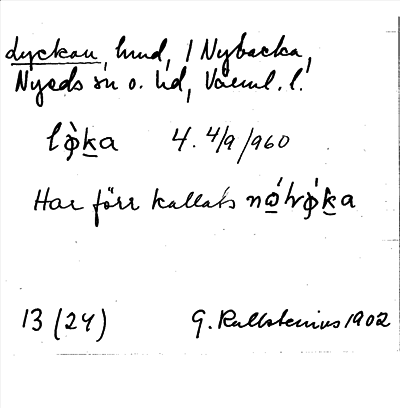 dyckan, hmd, 1 Nybacka,
Nyeds sn o. hd, Värml. l.
lø̀ka 4. 4/9 1960
Har förr kallats
13 (24) G. Kallstenius 1902